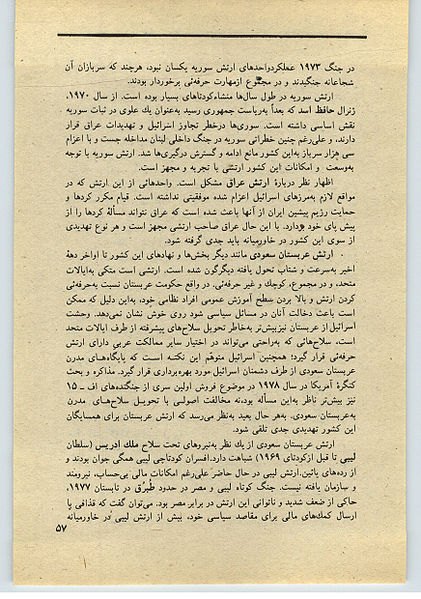 در جنگ ۱۹۷۳ عملکردواحدهای ارتش سوریه یکسان نبود، هرچند که سربازان آن
شجاعانه جنگیدند و در مجموع ازمهارت حرفه‌ئی برخوردار بودند.
ارتش سوریه در طول سال‌ها منشاءکودتاهای بسیار بوده است. از سال ۱۹۷۰،
ژنرال حافظ اسد که بعداً به‌ریاست جمهوری رسید به‌عنوان یك علوی در ثبات سوریه
نقش اساسی داشته است. سوری‌ها درخطر تجاوز اسرائیل و تهدیدات عراق قرار
دارند، و علی‌رغم چنین خطراتی سوریه در جنگ داخلی لبنان مداخله جست و با اعزام
سی هزار سرباز به‌این کشور مانع ادامه و گسترش درگیری‌ها شد. ارتش سوریه با توجه
به‌وسعت و امکانات این کشور ارتشی با تجربه و مجهز است.
اظهار نظر دربارهٔ ارتش عراق مشکل است. واحدهائی از این ارتش که در
مواقع لازم به‌مرزهای اسرائیل اعزام شده موفقیتی نداشته است. قیام مکرر کردها و
حمایت رژیم پیشین ایران از آنها باعث شده است که عراق نتواند مسألهٔ کردها را از
پیش پای خود بردارد. با این حال عراق صاحب ارتشی مجهز است و هر نوع تهدیدی
از سوی این کشور در خاورمیانه باید جدی گرفته شود.
ارتش عربستان سعودی مانند دیگر بخش‌ها و نهادهای این کشور تا اواخر دههٔ
اخیر به‌سرعت و شتاب تحول یافته دیگرگون شده است. ارتشی است متکی به‌ایالات
متحد، و در مجموع، کوچك و غیر حرفه‌ئی. در واقع حکومت عربستان نسبت به‌حرفه‌ئی
کردن ارتش و بالا بردن سطح آموزش عمومی افراد نظامی خود، به‌این دلیل که ممکن
است باعث دخالت آنان در مسائل سیاسی شود روی خوش نشان نمی‌دهد. وحشت
اسرائیل از عربستان نیزبیش‌تر به‌خاطر تحویل سلاح‌های پیشرفته از طرف ایالات متحد
است، سلاح‌هائی که به‌راحتی می‌تواند در اختیار سایر ممالکت عربی دارای ارتش
حرفه‌ئی قرار گیرد؛ همچنین اسرائیل متوهّم این نکته است که پایگاه‌های مدرن
عربستان سعودی از طرف دشمنان اسرائیل مورد بهره‌برداری قرار گیرد. مذاکره و بحث
کنگرهٔ آمریکا در سال ۱۹۷۸ در موضوع فروش اولین سری از جنگنده‌های اف ـ ۱۵
نیز بیش‌تر ناظر به‌این مسأله بود،نه مخالفت اصولی با تحویل سلاح‌های مدرن
به‌عربستان سعودی. به‌هر حال بعید به‌نظر می‌رسد که ارتش عربستان برای همسایگان
این کشور تهدیدی جدی تلقی شود.
ارتش عربستان سعودی از یك نظر به‌نیروهای تحت سلاح ملك ادریس (سلطان
لیبی تا قبل ازکودتای ۱۹۶۹) شباهت دارد.افسران کودتاچی لیبی همگی جوان بودند و
از رده‌های پائین.ارتش لیبی در حال حاضر علی‌رغم امکانات مالی بی‌حساب، نیرومند
و سازمان یافته نیست. جنگ کوتاه لیبی و مصر در حدود طُبرُق در تابستان ۱۹۷۷،
حاکی از ضعف شدید و ناتوانی این ارتش در برابر مصر بود. می‌توان گفت که قذافی با
ارسال کمك‌های مالی برای مقاصد سیاسی خود، بیش از ارتش لیبی در خاورمیانه
۵۷